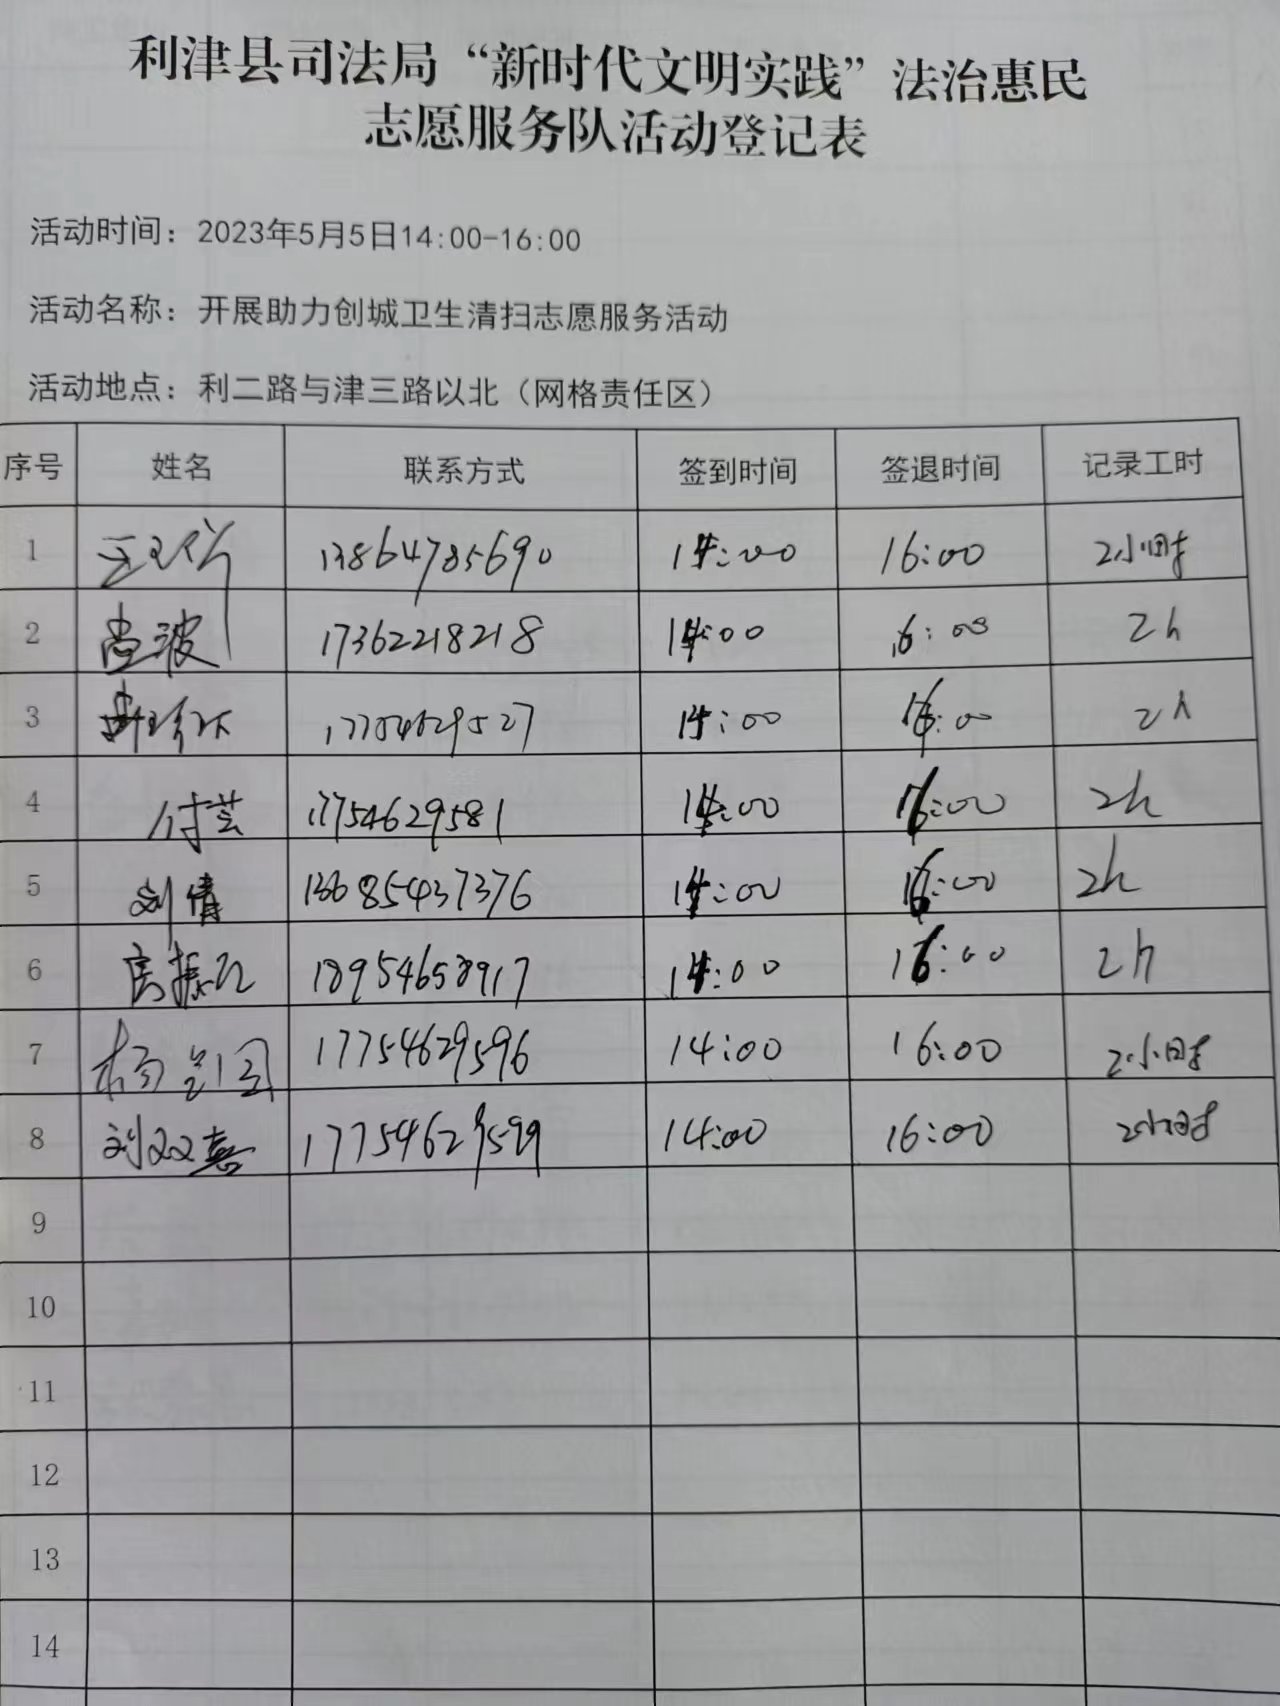 利津县司法局“新时代文明实践”法治惠民
志愿服务队活动登记表
活动时间：2023年5月5日14:00-16:00
活动名称：开展助力创城卫生清扫志愿服务活动
活动地点：利二路与津三路以北（网格责任区）
序号 姓名 联系方式 签到时间 签退时间 记录工时
1 13864785690 14:00 16:00 2小时
2 尚波 17362218218 14:00 16:00 2h
3 14:00 16:00 2h
4 付芸 17754629581 14:00 16:00 2h
5 刘倩 14:00 16:00 2h
6 18954658917 14:00 16:00 2h
7 17754629596 14:00 16:00 2小时
8 刘双喜 17754629599 14:00 16:00 2小时
9
10
11
12
13
14